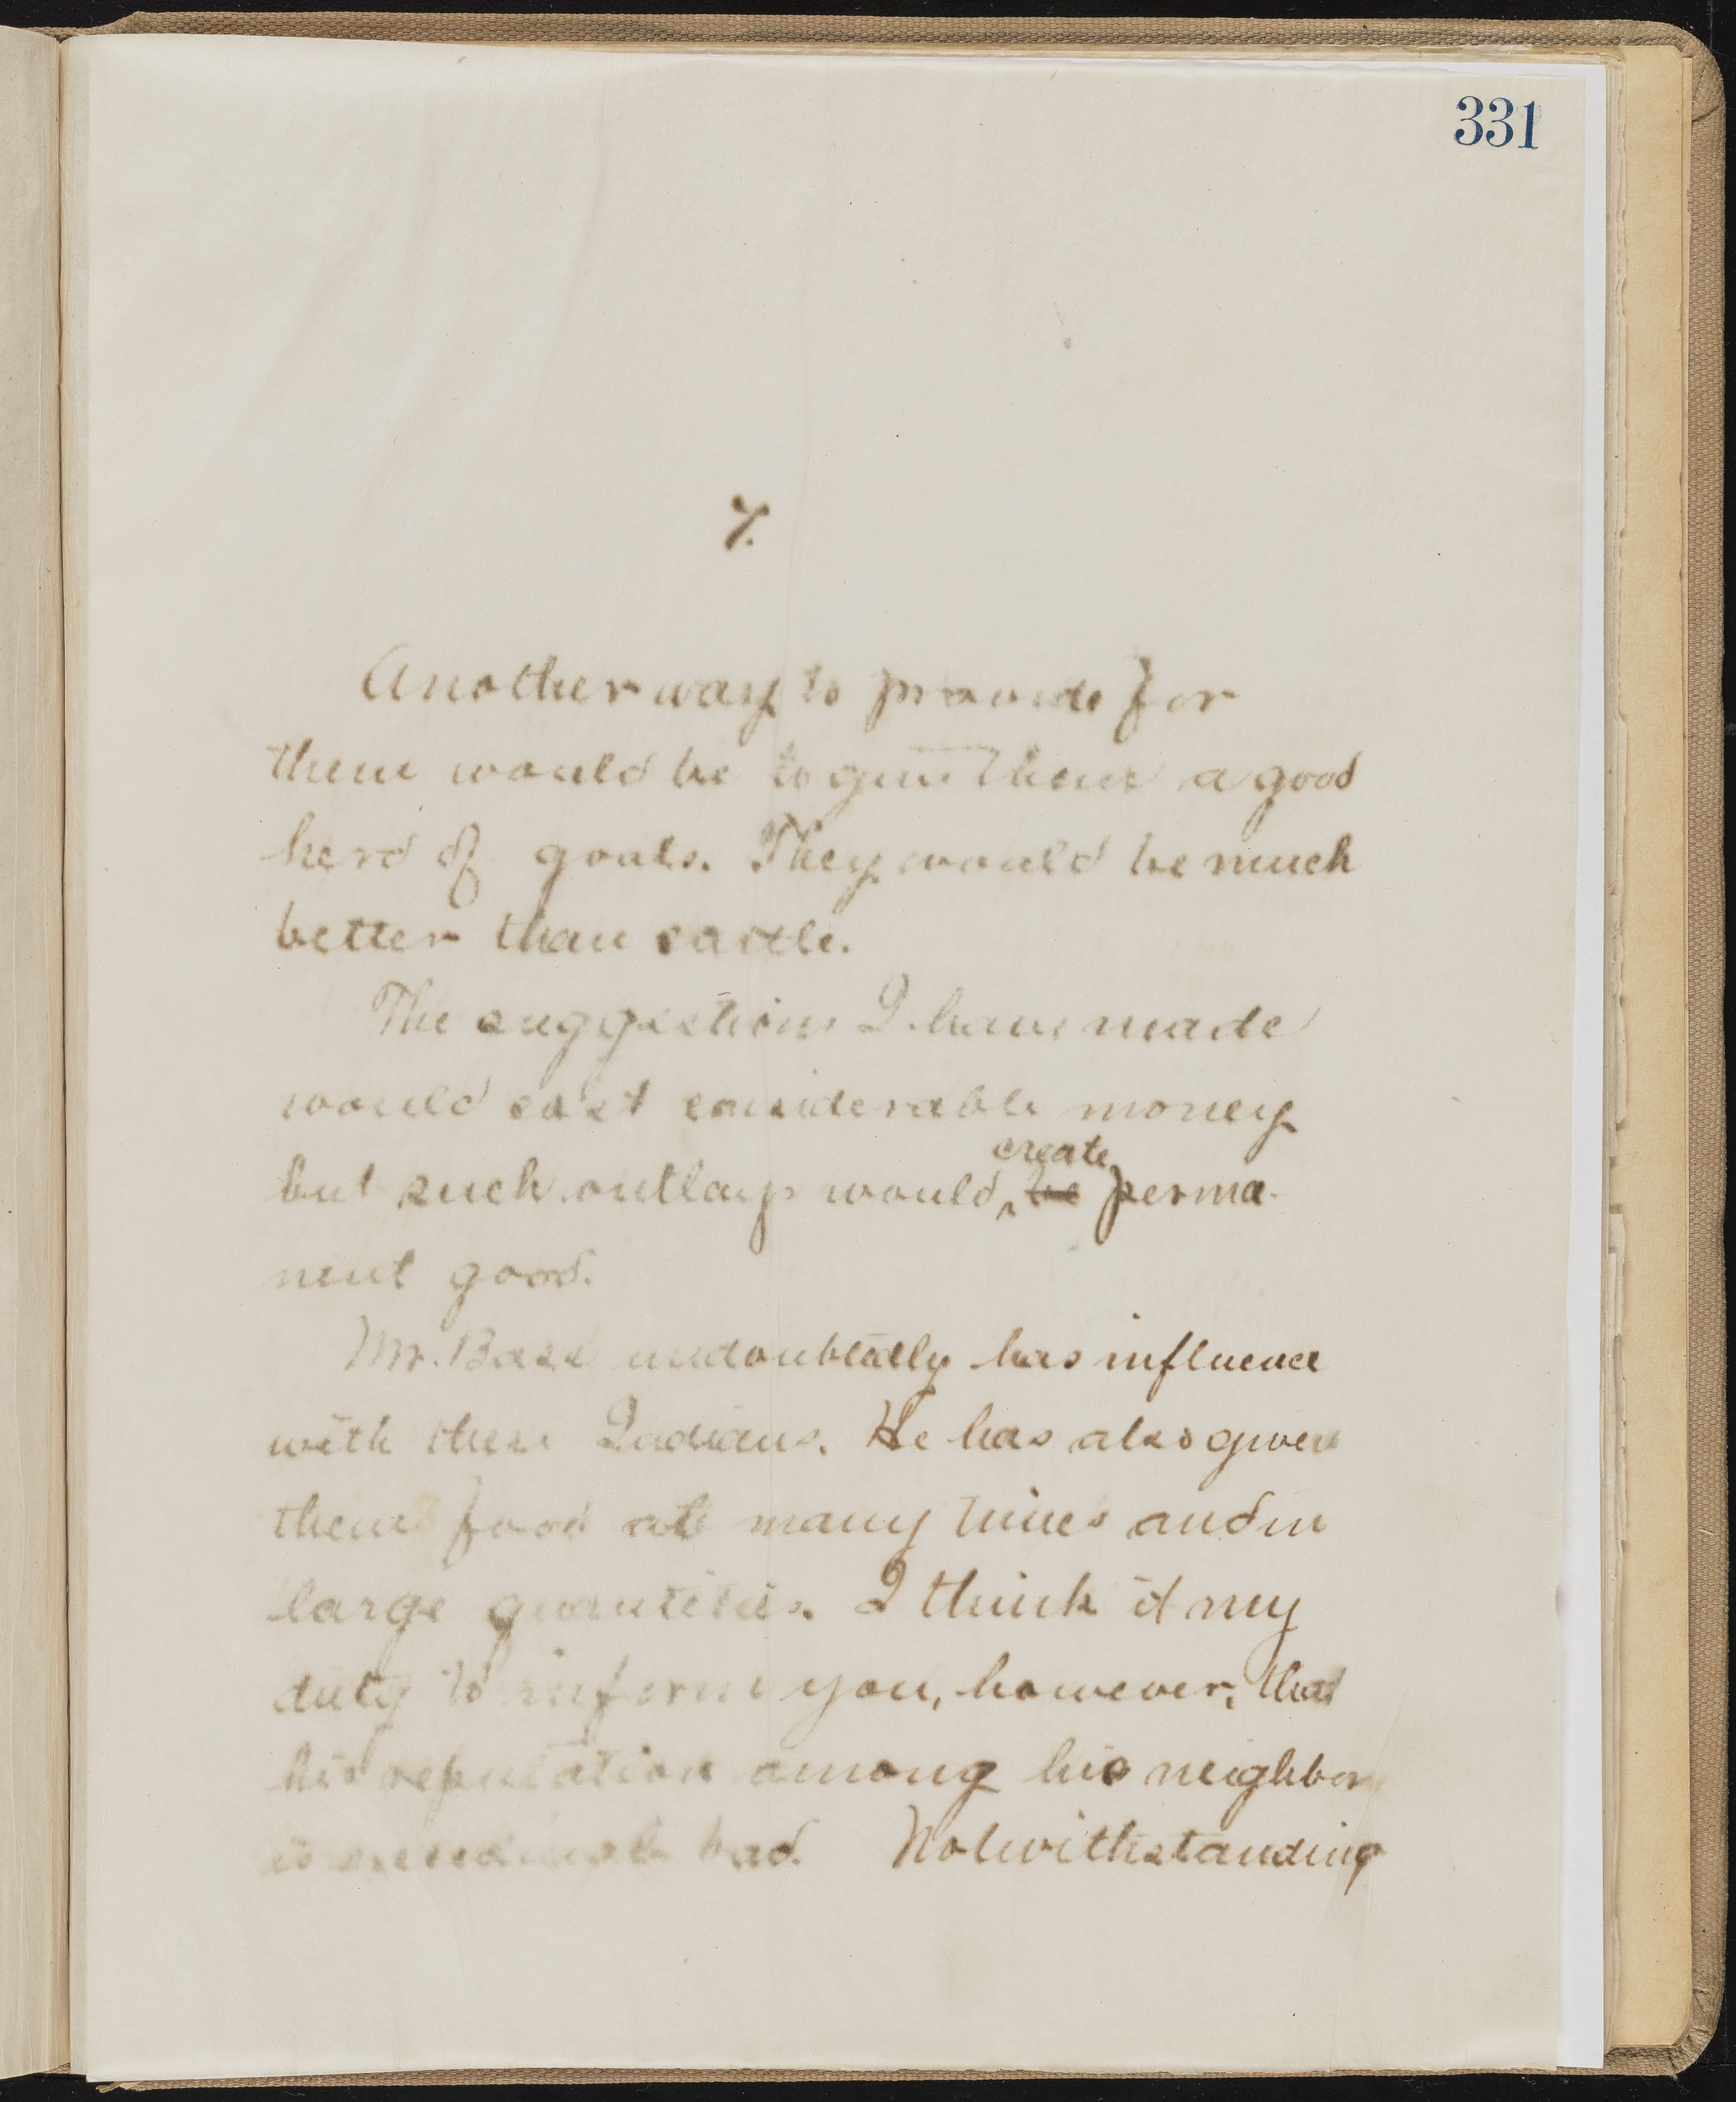 331
7.
Another way to provide for
them would be to give them a good
herd of goats. They would be much
better than cattle.
The suggestions I have made
would cost considerable money
create
but such outlay would ‸ be perma-
nent good.
Mr. Bass undoubtedly has influence
with these Indians. He has also given
them food at many times and in
large quantities. I think it my
duty to inform you, however, that
his reputation among his neighbors
is bad. Notwithstanding